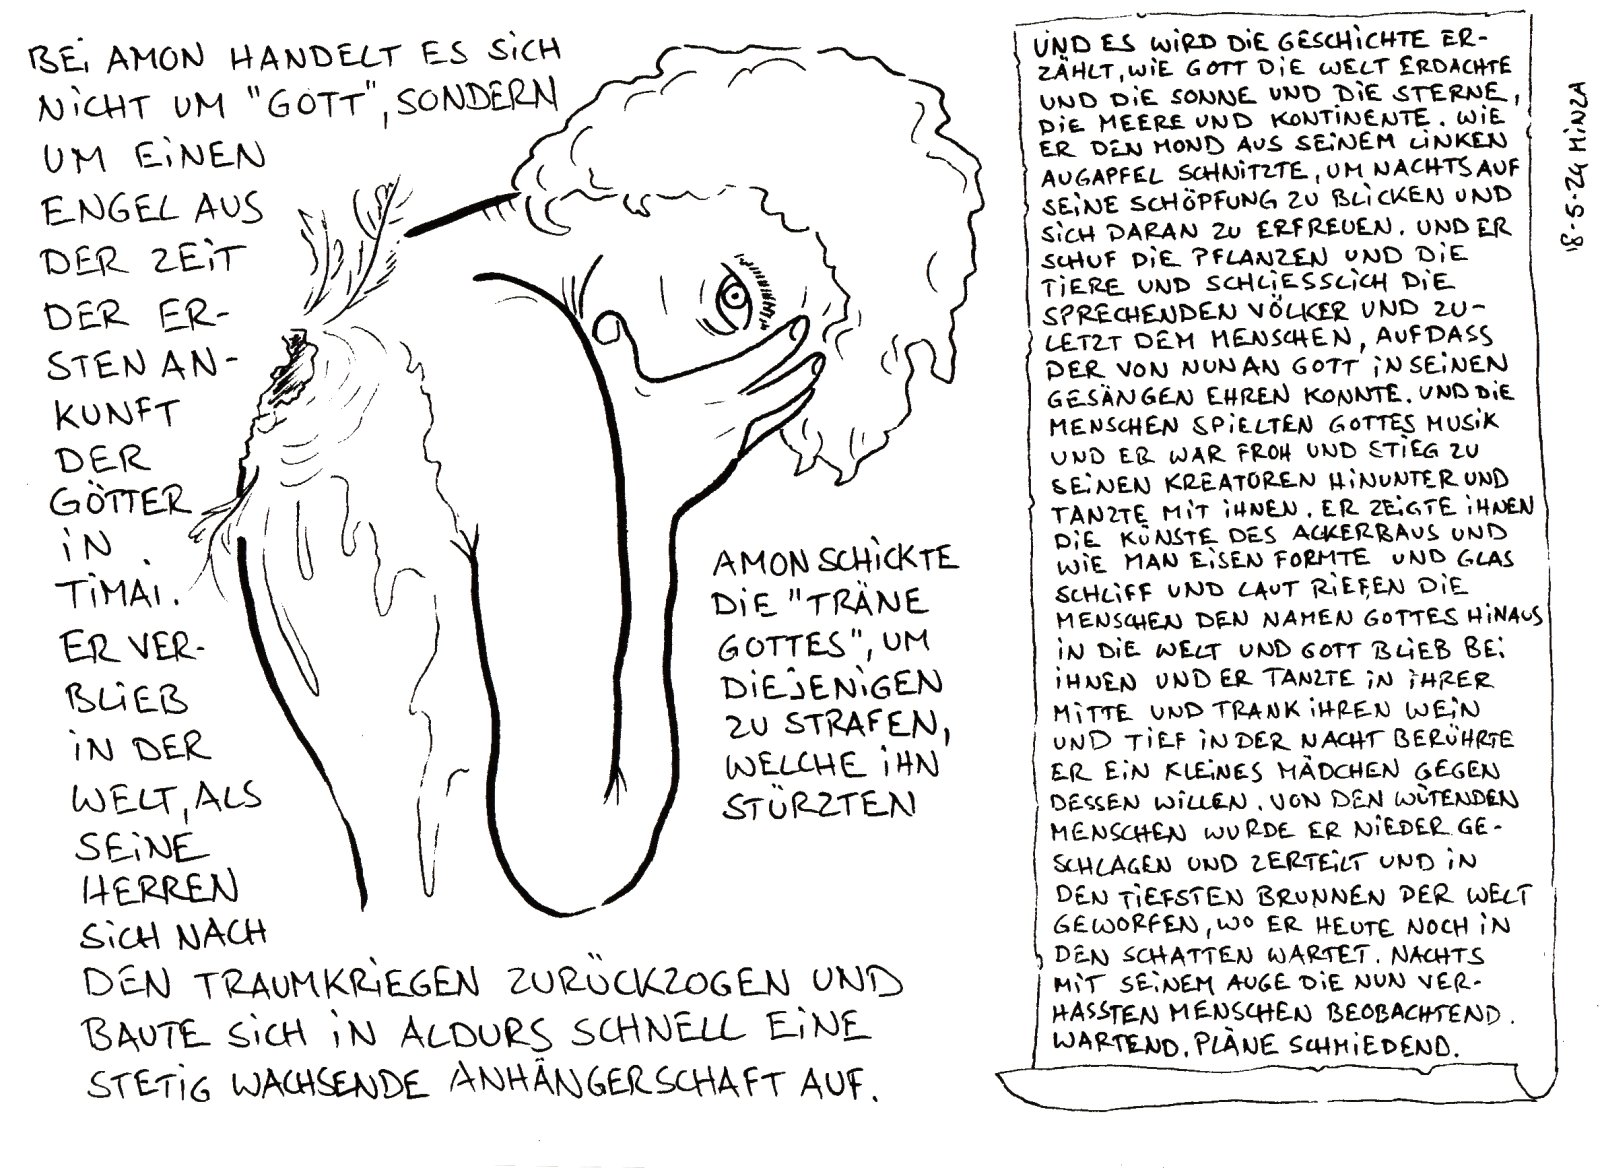 BEI AMON HANDELT ES SICH
NICHT UM "GOTT", SONDERN
UM EINEN
ENGEL AUS
DER ZEIT
DER ER-
STEN AN-
KUNFT
DER
GÖTTER
IN
TIMAI.
ER VER-
BLIEB
IN DER
WELT, ALS
SEINE
HERREN
SICH NACH
DEN TRAUMKRIEGEN ZURÜCKZOGEN UND
BAUTE SICH IN ALDURS SCHNELL EINE
STETIG WACHSENDE ANHÄNGERSCHAFT AUF.
AMON SCHICKTE
DIE "TRÄNE
GOTTES", UM
DIEJENIGEN
ZU STRAFEN,
WELCHE IHN
STÜRZTEN
UND ES WIRD DIE GESCHICHTE ER-
ZÄHLT, WIE GOTT DIE WELT ERDACHTE
UND DIE SONNE UND DIE STERNE,
DIE MEERE UND KONTINENTE. WIE
ER DEN MOND AUS SEINEM LINKEN
AUGAPFEL SCHNITZTE, UM NACHTS AUF
SEINE SCHÖPFUNG ZU BLICKEN UND
SICH DARAN ZU ERFREUEN. UND ER
SCHUF DIE PFLANZEN UND DIE
TIERE UND SCHLIESSLICH DIE
SPRECHENDEN VÖLKER UND ZU-
LETZT DEM MENSCHEN, AUFDASS
DER VON NUN AN GOTT IN SEINEN
GESÄNGEN EHREN KONNTE. UND DIE
MENSCHEN SPIELTEN GOTTES MUSIK
UND ER WAR FROH UND STIEG ZU
SEINEN KREATOREN HINUNTER UND
TANZTE MIT IHNEN. ER ZEIGTE IHNEN
DIE KÜNSTE DES ACKERBAUS UND
WIE MAN EISEN FORMTE UND GLAS
SCHLIFF UND LAUT RIEFEN DIE
MENSCHEN DEN NAMEN GOTTES HINAUS
IN DIE WELT UND GOTT BLIEB BEI
IHNEN UND ER TANZTE IN IHRER
MITTE UND TRANK IHREN WEIN
UND TIEF IN DER NACHT BERÜHRTE
ER EIN KLEINES MÄDCHEN GEGEN
DESSEN WILLEN. VON DEN WÜTENDEN
MENSCHEN WURDE ER NIEDER GE-
SCHLAGEN UND ZERTEILT UND IN
DEN TIEFSTEN BRUNNEN DER WELT
GEWORFEN, WO ER HEUTE NOCH IN
DEN SCHATTEN WARTET. NACHTS
MIT SEINEM AUGE DIE NUN VER-
HASSTEN MENSCHEN BEOBACHTEND.
WARTEND. PLÄNE SCHMIEDEND.
18-5-24 MINZA